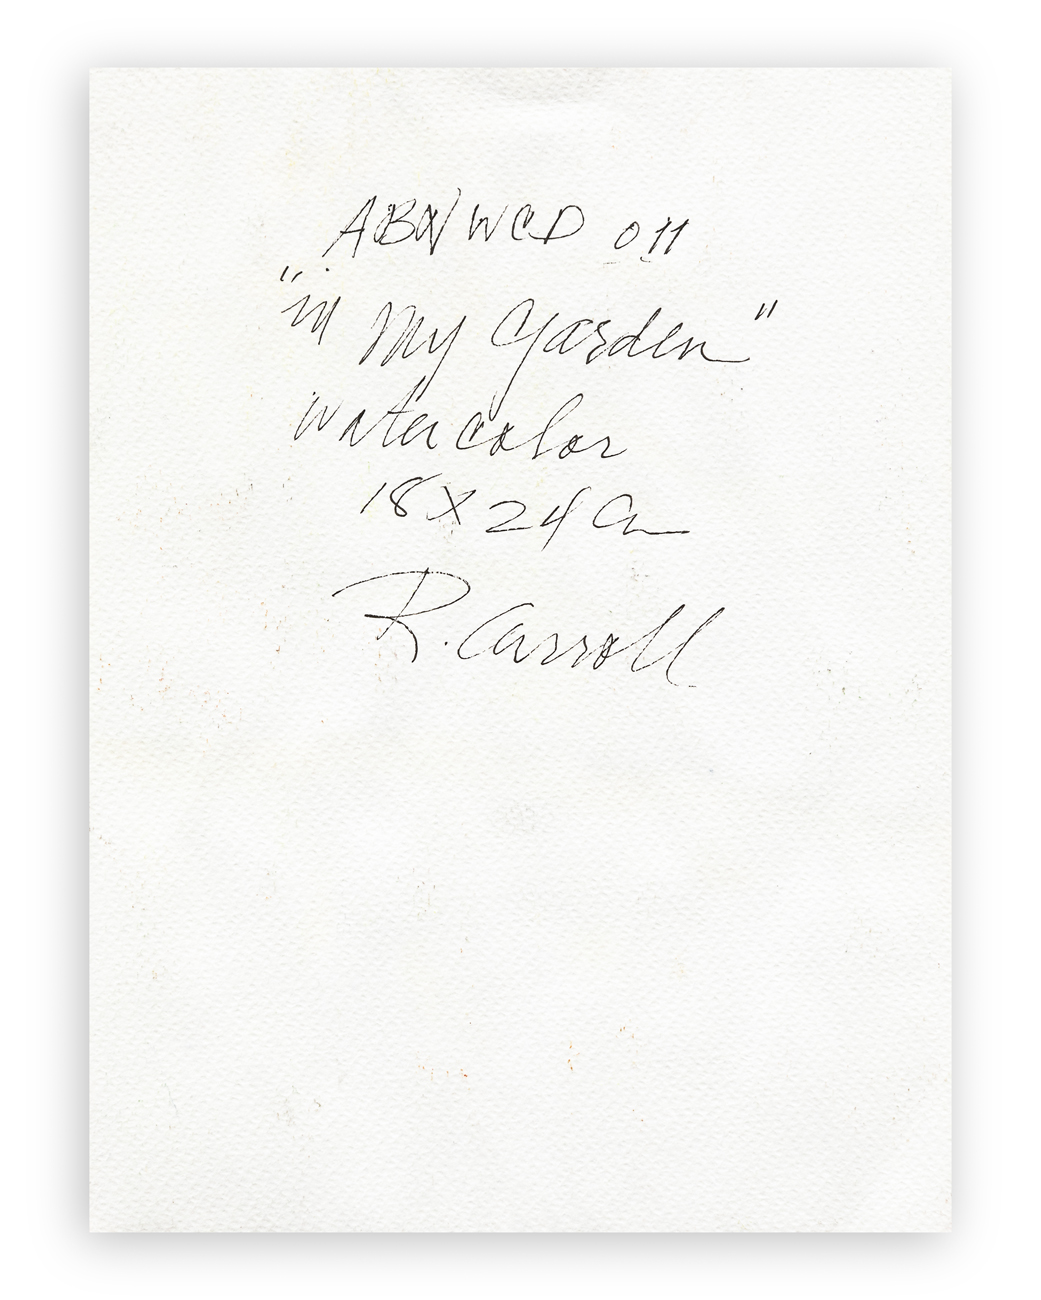 ABN/WCD 011
"in My Garden"
Watercolor
18 X 24 Cm
R. Carroll